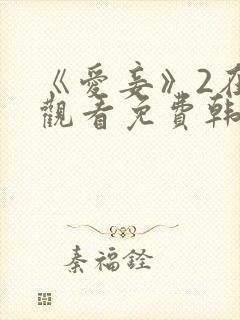 《愛妾》2在
觀看免費韩
秦福銓